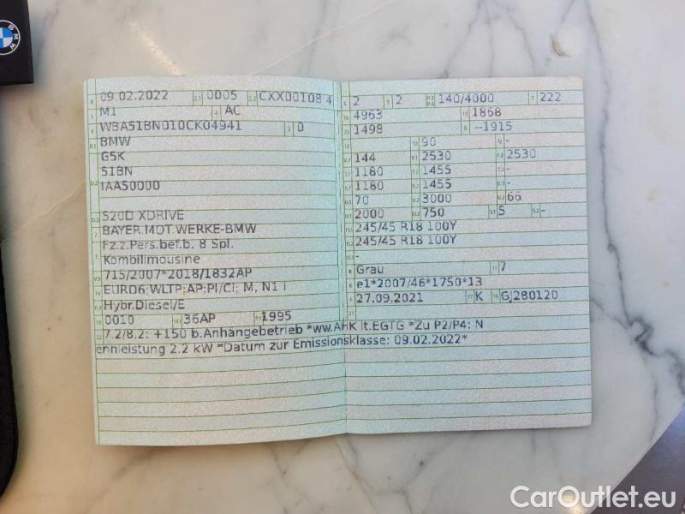 09.02.2022 0005 CXX00108 4
M1 AC
WBA51BN010CK04941 0
BMW
G5K
51BN
IAA50000
520D XDRIVE
BAYER.MOT.WERKE-BMW
Fz.z.Pers.bef.b. 8 Spl.
Kombilimousine
715/2007*2018/1832AP
EURO6;WLTP;AP;PI/CI; M, N1 I
Hybr.Diesel/E
0010 36AP 1995
7.2/8.2: +150 b.Anhängebetrieb *ww.AHK lt.EGTG *Zu P2/P4: N
ennleistung 2.2 kW *Datum zur Emissionsklasse: 09.02.2022*
2 2 140/4000 222
4963 1868
1498 --1915
90 -
144 2530 2530
1180 1455 -
1180 1455 -
70 3000 66
2000 750 5 -
245/45 R18 100Y
245/45 R18 100Y
-
Grau 7
e1*2007/46*1750*13
27.09.2021 K GJ280120
CarOutlet.eu